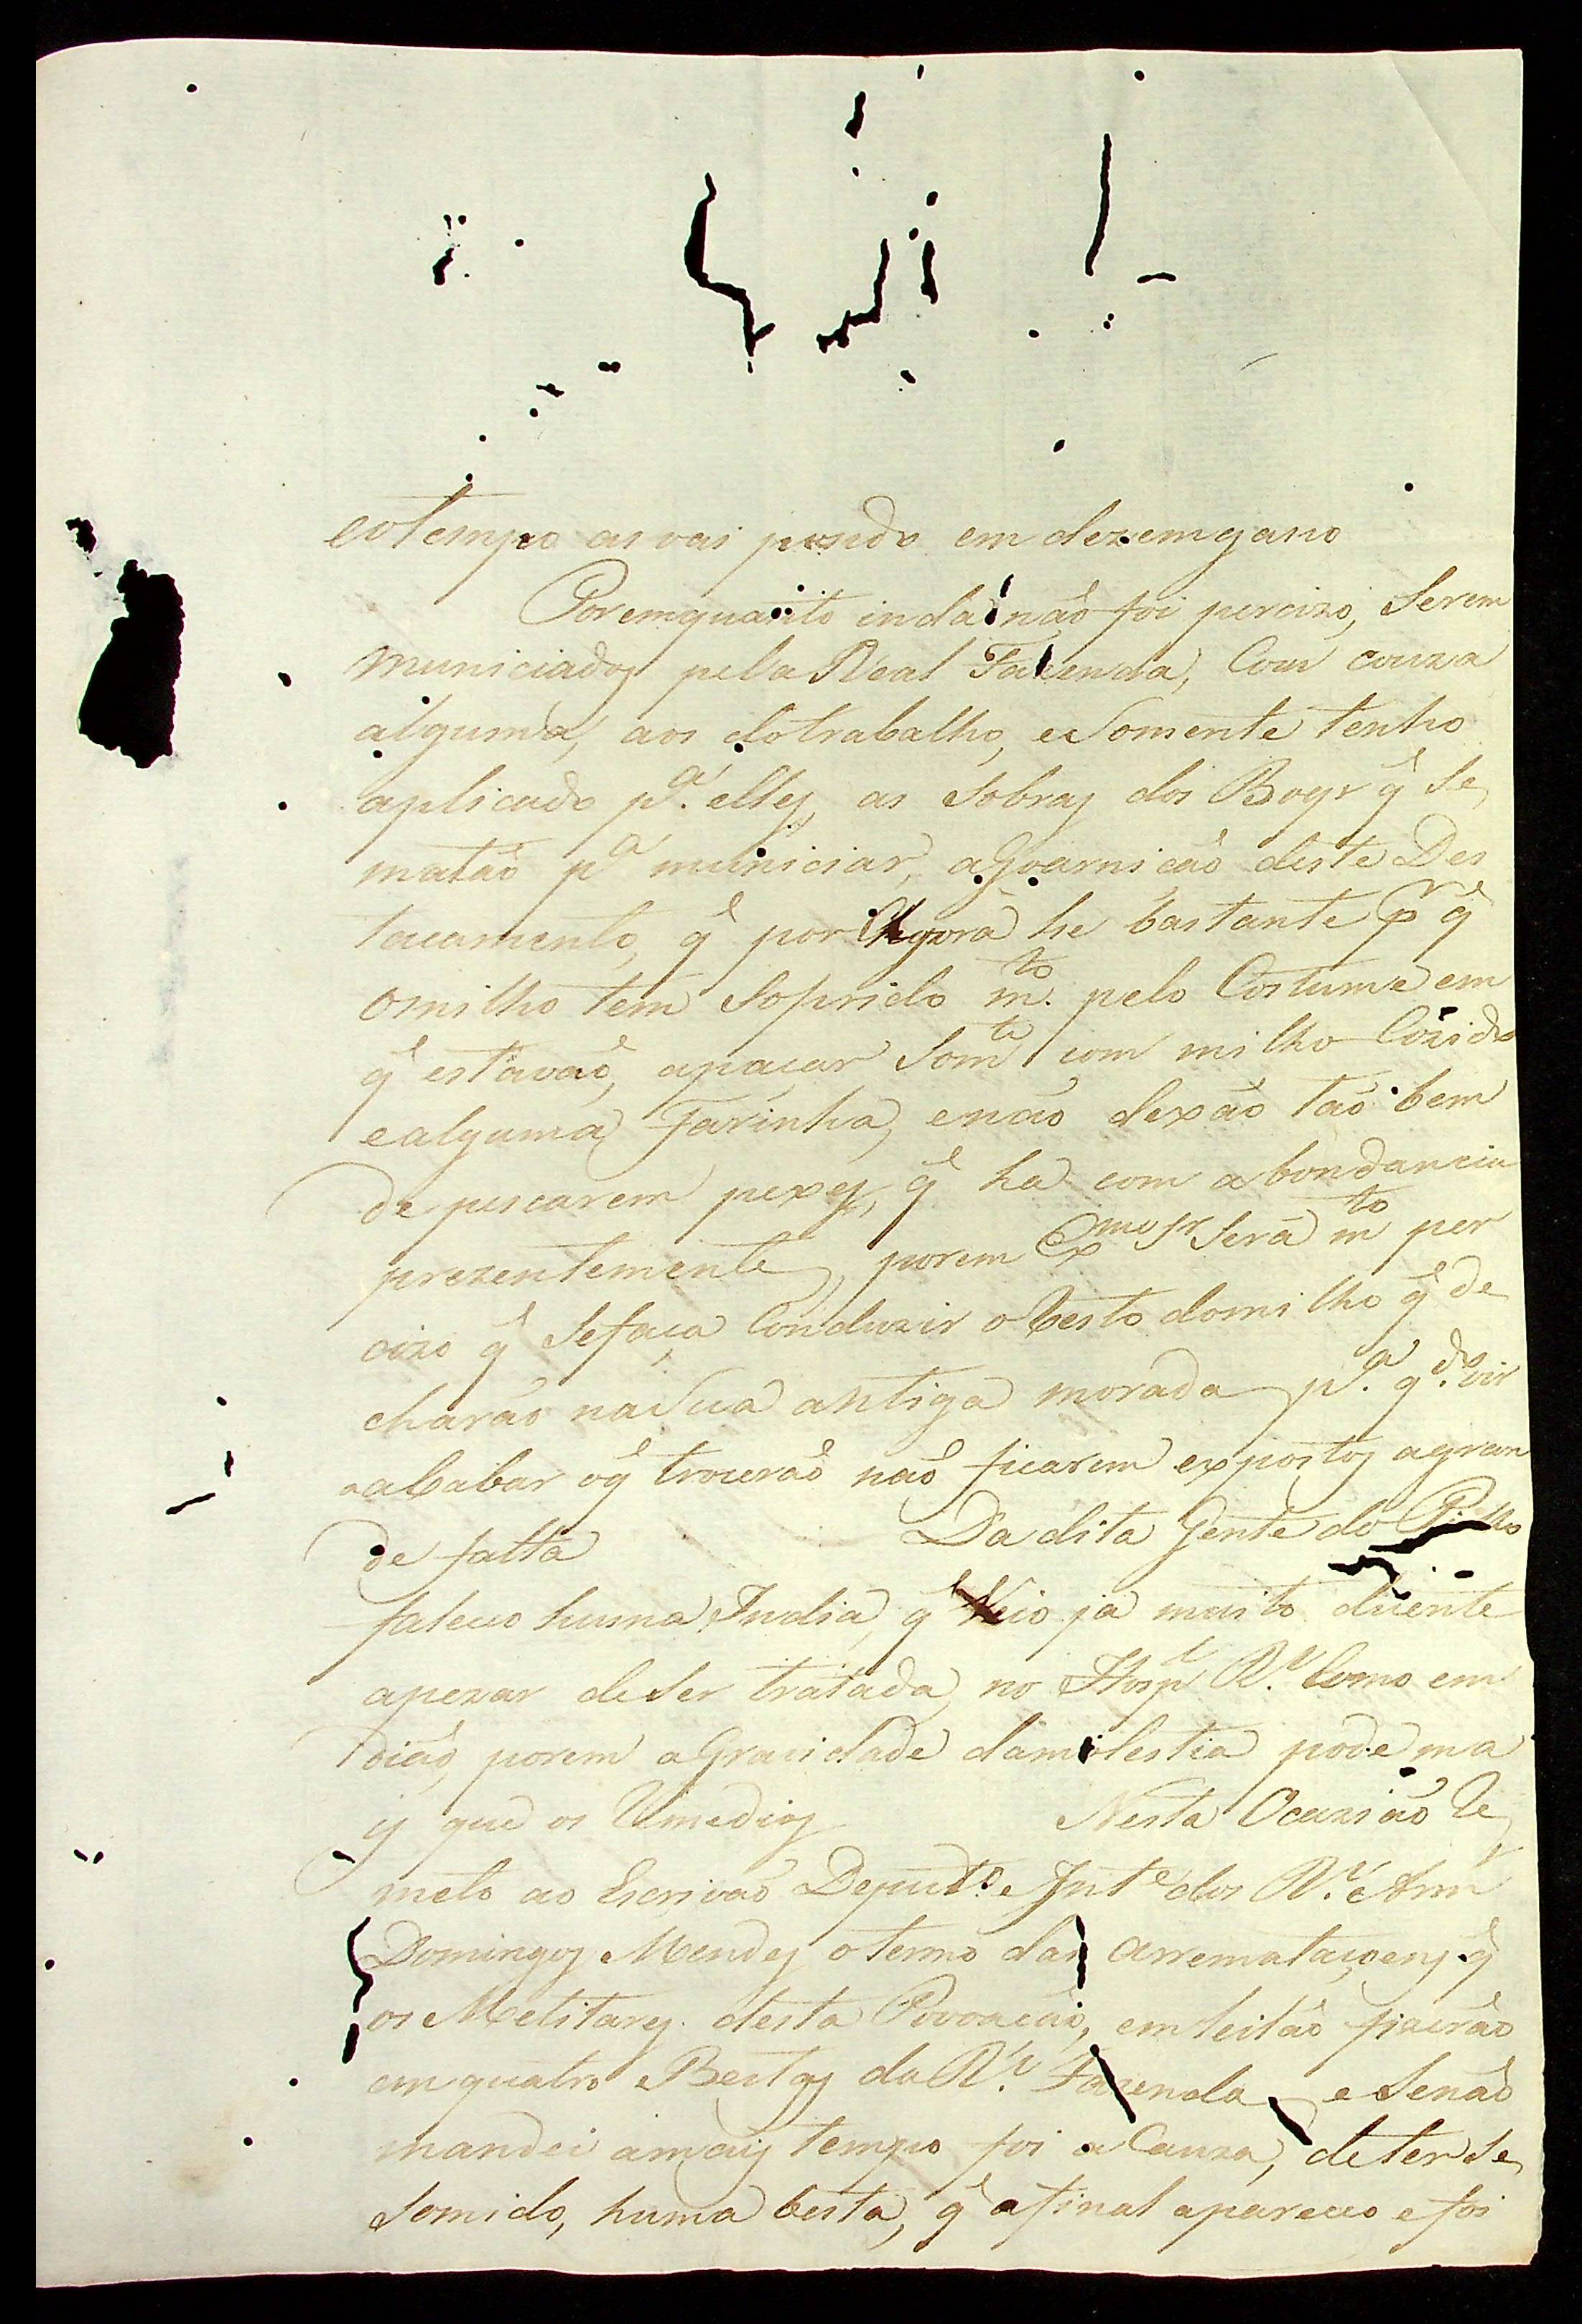 eotempo as vai pondo em dezemgano
Poremquanto inda não foi percizo, Serem
municiados pela Real Fazenda, Com couza
alguma, aos dotrabalho, eSomente tenho
aplicado p.ª elles, as Sobras dos Boys q̃ Se
matão pª municiar, aGoarnicão deste Des
tacamento, q̃ por Agora he bastante pʳ q̃
Omilho tem Soprido m.ᵗᵒ pelo Costume em
q̃ estavão, apaçar Somᵗᵉ com milho Cozido
ealguma Farinha, enão dexão tão bem
de pescarem pexes, q̃ ha com abondancia
prezentemente, porem Exᵐᵒ Sʳ Será mᵗᵒ per
cizo q̃ Sefaça Conduzir oResto domilho q̃ de
charão naSua antiga morada p.ª q.ᵈᵒ vir
acabar oq̃ trocerão não ficarem expostos agran
de falta Da dita Gente do
faleceo huma India, q̃ Veio já muito duente
apezar deSer tratada, no Hospˡ R.ˡ Como em
dião, porem aGravidade damolestia pode ma
is que os Remedios Nesta Ocazião Re
meto ao Escrivão Deput.º e Intᵉ dos R.ˢ Armˢ
Domingos Mendes otermo das arremataçoens q̃
os Melitares desta Povoacão, emleilão fizerão
em quatro Bestas da R.ˡ Fazenda eSenão
mandei amais tempo foi a Cauza, deterSe
Somido, huma besta, q̃ afinal apareceo efoi